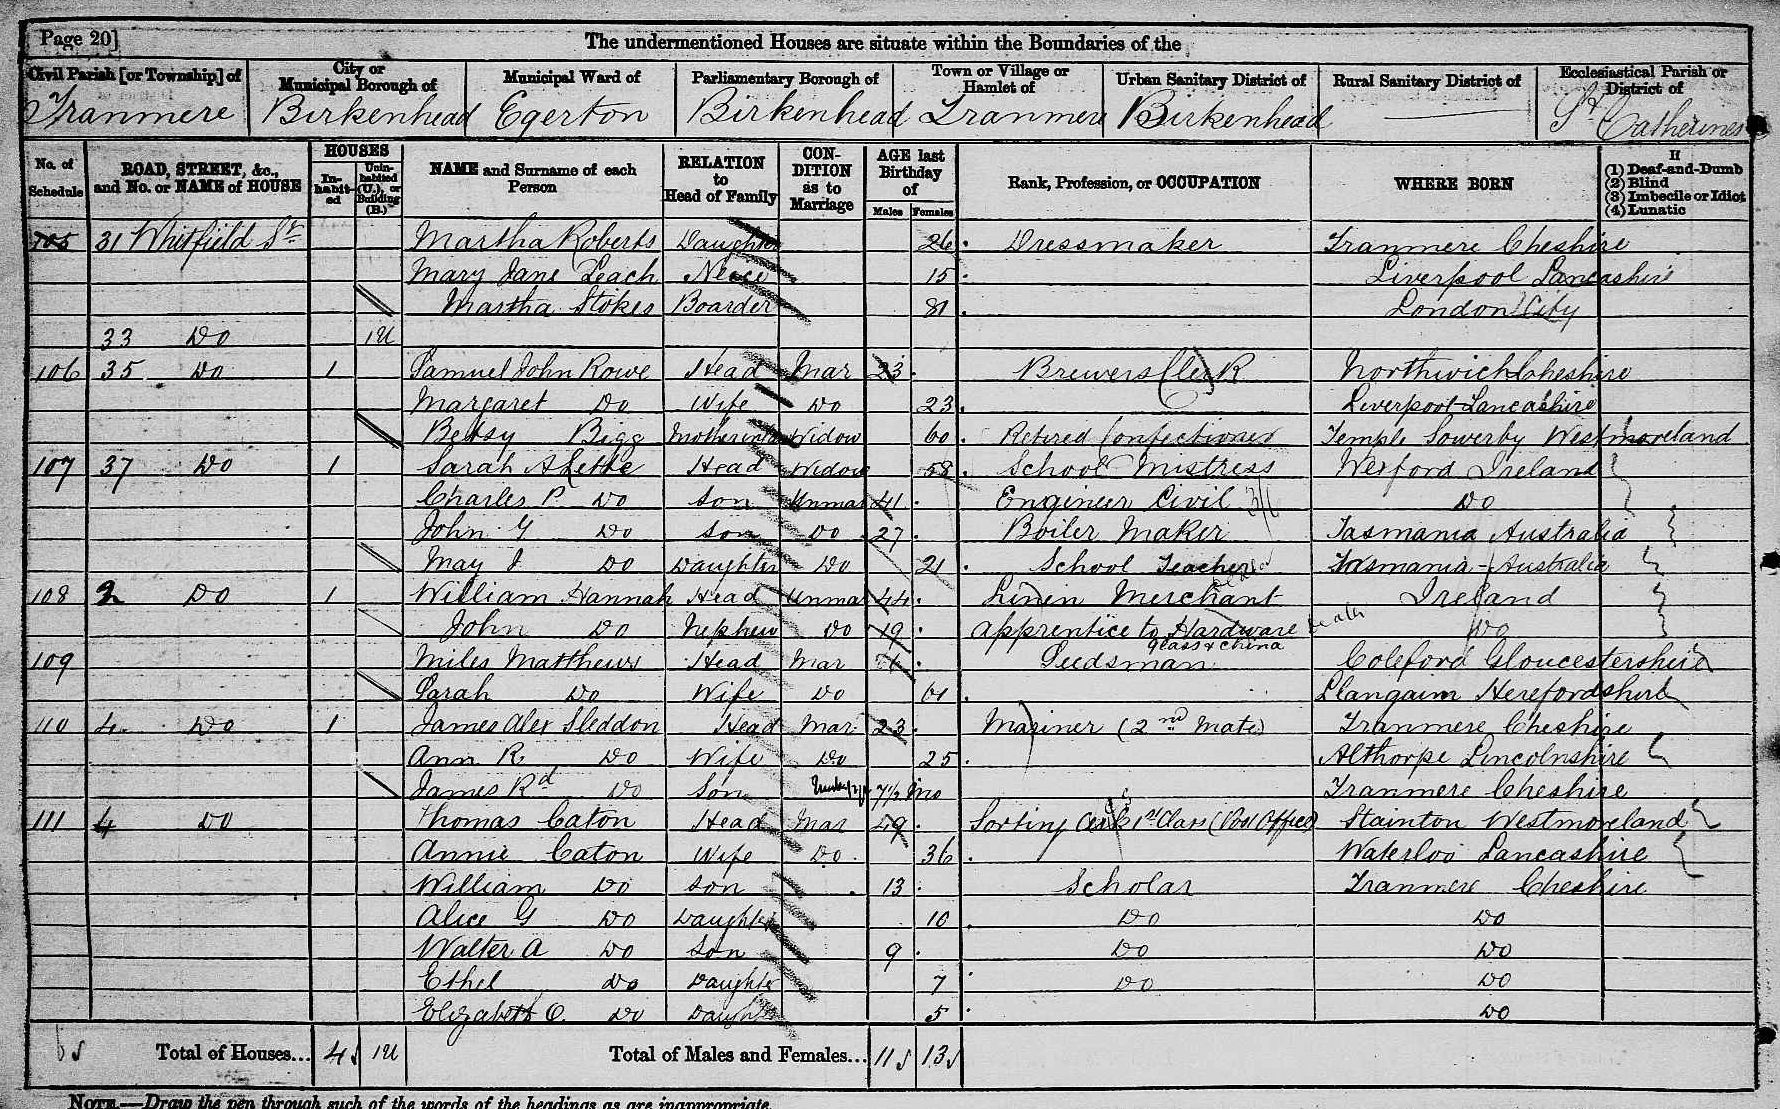 Page 20]
The undermentioned Houses are situate within the Boundaries of the
Civil Parish [or Township] of
City or Municipal Borough of
Municipal Ward of
Parliamentary Borough of
Town or Village or Hamlet of
Urban Sanitary District of
Rural Sanitary District of
Ecclesiastical Parish or District of
Tranmere Birkenhead Egerton Birkenhead Tranmere Birkenhead St Catherines
No. of Schedule
ROAD, STREET, &c., and No. or NAME of HOUSE
HOUSES
In-habit-ed
Unin-habited (U.), or Building (B.)
NAME and Surname of each Person
RELATION to Head of Family
CON-DITION as to Marriage
AGE last Birthday of
Males Females
Rank, Profession, or OCCUPATION
WHERE BORN
If
(1) Deaf-and-Dumb
(2) Blind
(3) Imbecile or Idiot
(4) Lunatic
105 31 Whitfield St Martha Roberts Daughter 26 Dressmaker Tranmere Cheshire
Mary Jane Leach Neice 15 Liverpool Lancashire
Martha Stokes Boarder 81 London City
33 Do 1U
106 35 Do 1 Samuel John Rowe Head Mar 23 Brewers Clerk Northwich Cheshire
Margaret Do Wife Do 23 Liverpool Lancashire
Betsy Bigg Mother in law Widow 60 Retired Confectioner Temple Sowerby Westmoreland
107 37 Do 1 Sarah A Head Widow 58 School Mistress Wexford Ireland
Charles P Do Son Unmar 41 Engineer Civil Do
John G Do Son Do 27 Boiler Maker Tasmania Australia
May J Do Daughter Do 21 School Teacher Tasmania - Australia
108 2 Do 1 William Hannah Head Unmar 44 Linen Merchant Ireland
John Do Nephew Do 19 Apprentice to Hardware Do
Glass & China
109 Miles Matthews Head Mar Seedsman Coleford Gloucestershire
Sarah Do Wife Do 61 Herefordshire
110 4 Do 1 James Alex Sleddon Head Mar 23 Mariner (2nd Mate) Tranmere Cheshire
Ann R Do Wife Do 25 Althorpe Lincolnshire
James Rd Do Son 7½ Mo Tranmere Cheshire
111 4 Do Thomas Caton Head Mar 49 Sorting Clerk 1st Class (Post Office) Stainton Westmoreland
Annie Caton Wife Do 36 Waterloo Lancashire
William Do Son 13 Scholar Tranmere Cheshire
Alice G Do Daughter 10 Do Do
Walter A Do Son 9 Do Do
Ethel Do Daughter 7 Do Do
Elizabeth O. Do Daughter 5 Do
Total of Houses... 4 1U Total of Males and Females... 11 13
NOTE.—Draw the pen through such of the words of the headings as are inappropriate.